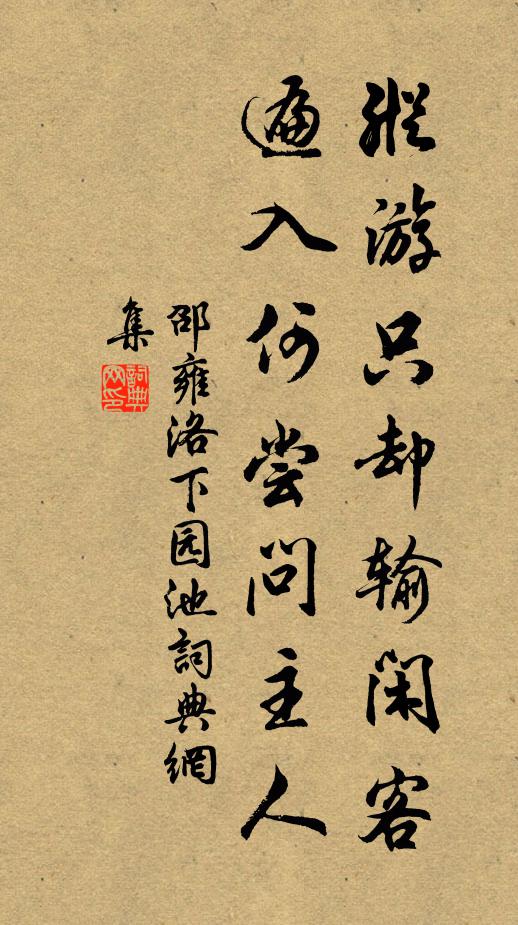 縱游只却输闲客
遍入何尝问主人
邵雍洛下园池詞典網
集
詞典
网印